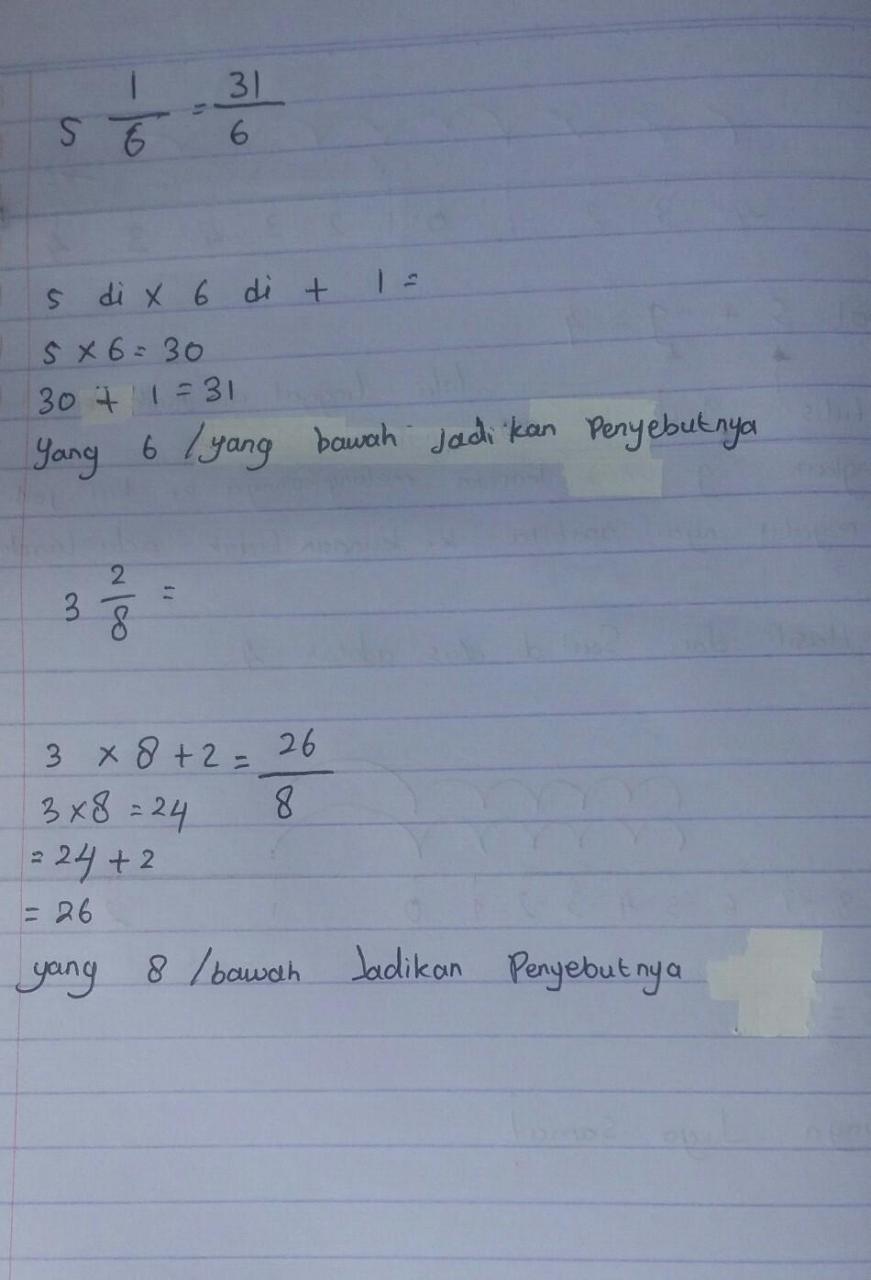 5 1/6 = 31/6
5 di x 6 di + 1 =
5 x 6 = 30
30 + 1 = 31
Yang 6 / yang bawah Jadi kan Penyebutnya
3 2/8 =
3 x 8 + 2 = 26/8
3 x 8 = 24
= 24 + 2
= 26
yang 8 / bawah Jadikan Penyebutnya